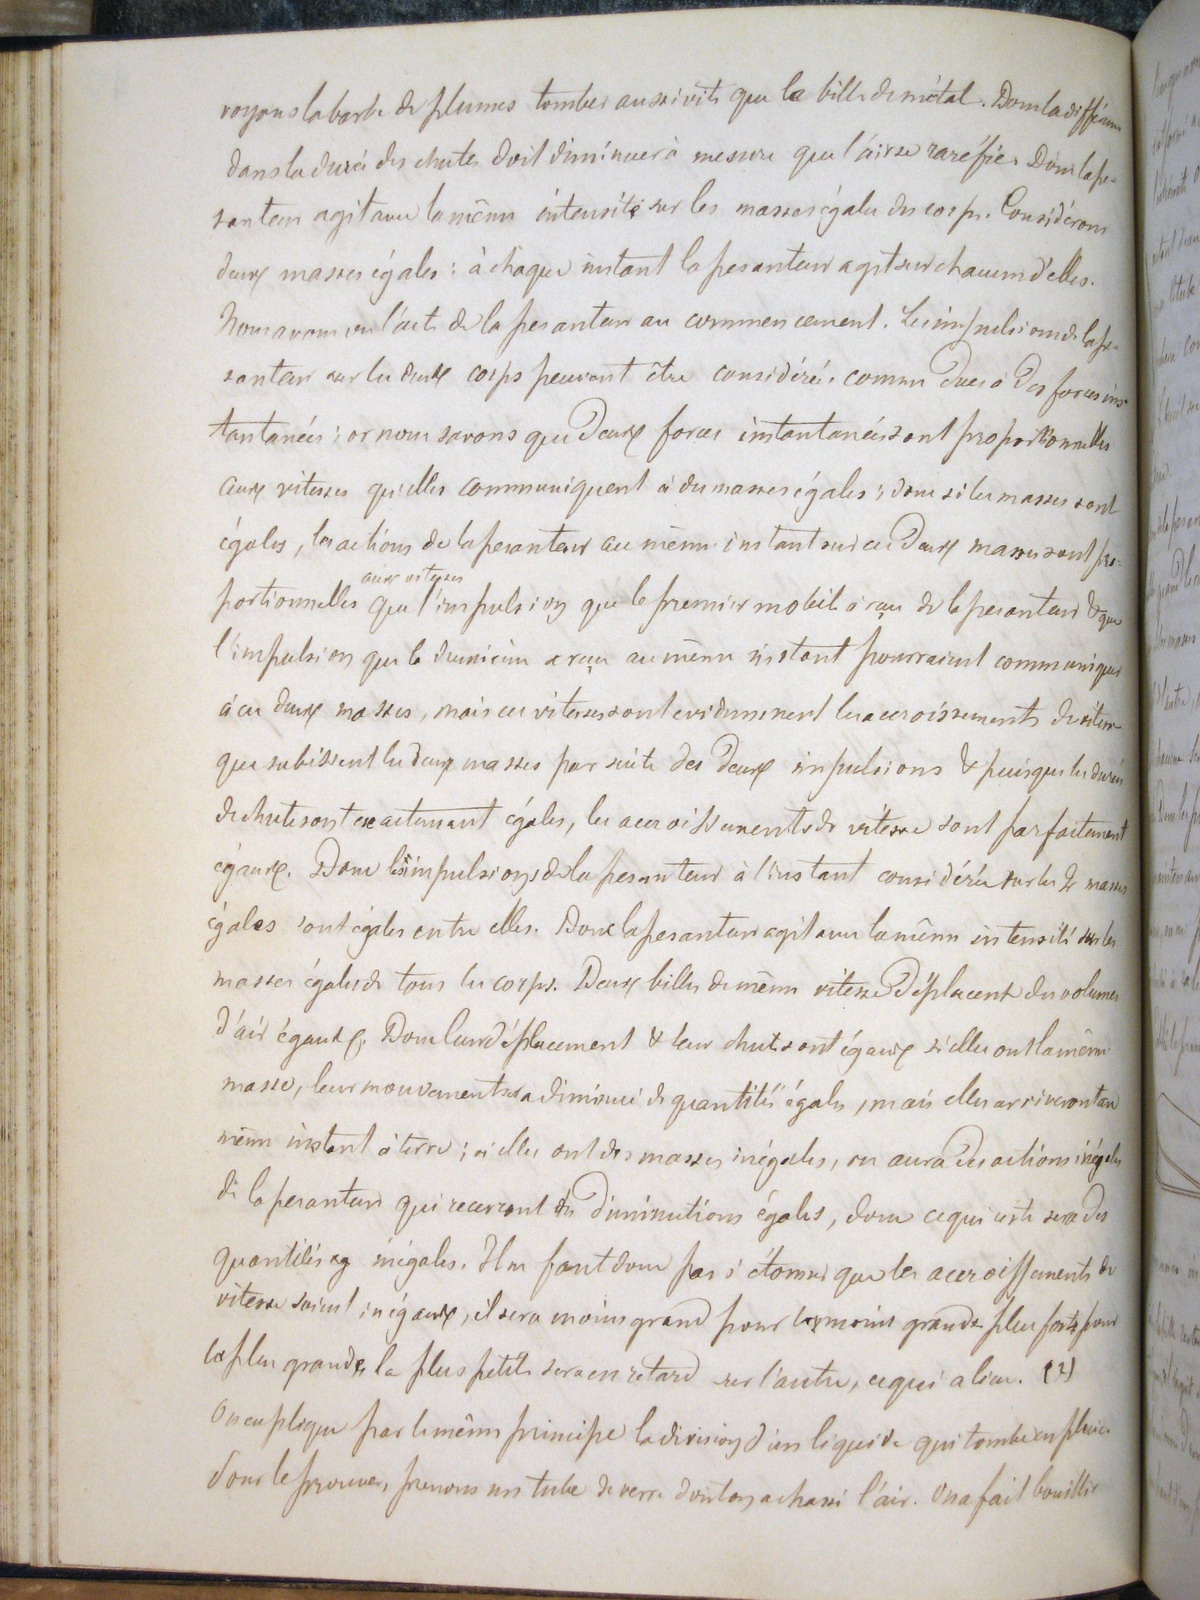 voyons la barbe de plumes tomber aussi vite que la bille de métal. Donc la différence
dans la durée des chutes doit diminuer à mesure que l'air se raréfie. Donc la pe-
santeur agit avec la même intensité sur les masses égales des corps. Considérons
deux masses égales : à chaque instant la pesanteur agit sur chacune d'elles.
Nous avons vu l'acte de la pesanteur au commencement. Les impulsions de la pe-
santeur sur les deux corps peuvent être considérées comme dues à des forces ins-
tantanées ; or nous savons que deux forces instantanées sont proportionnelles
aux vitesses qu'elles communiquent à des masses égales ; donc si les masses sont
égales, les actions de la pesanteur au même instant sur ces deux masses sont pro-
aux vitesses
portionnelles que l'impulsion que le premier mobile a reçu de la pesanteur & que
l'impulsion que le deuxième a reçu au même instant pourraient communiquer
à ces deux masses, mais ces vitesses sont evidemment les accroissements de vitesse
que subissent les deux masses par suite des deux impulsions & puisque les durées
de chute sont exactement égales, les accroissements de vitesse sont parfaitement
égaux. Donc les impulsions de la pesanteur à l'instant considéré sur les 2 masses
égales sont égales entre elles. Donc la pesanteur agit avec la même intensité sur les
masses égales de tous les corps. Deux billes de même vitesse déplacent des volumes
d'air égaux. Donc leur déplacement & leur chute sont égaux si elles ont la même
masse, leur mouvement sera diminué de quantités égales, mais elles arriveront au
même instant à terre ; si elles ont des masses inégales, on aura des actions inégales
de la pesanteur qui recevront des diminutions égales, donc ce qui reste sera des
quantités inégales. Il ne faut donc pas s'étonner que les accroissements de
vitesse soient inégaux, il sera moins grand pour la moins grande plus forte pour
la plus grande, la plus petite sera en retard sur l'autre, ce qui a lieu. (2)
On explique par le même principe la division d'un liquide qui tombe en pluie
Pour le prouver, prenons un tube de verre dont on a chassé l'air. On a fait bouillir